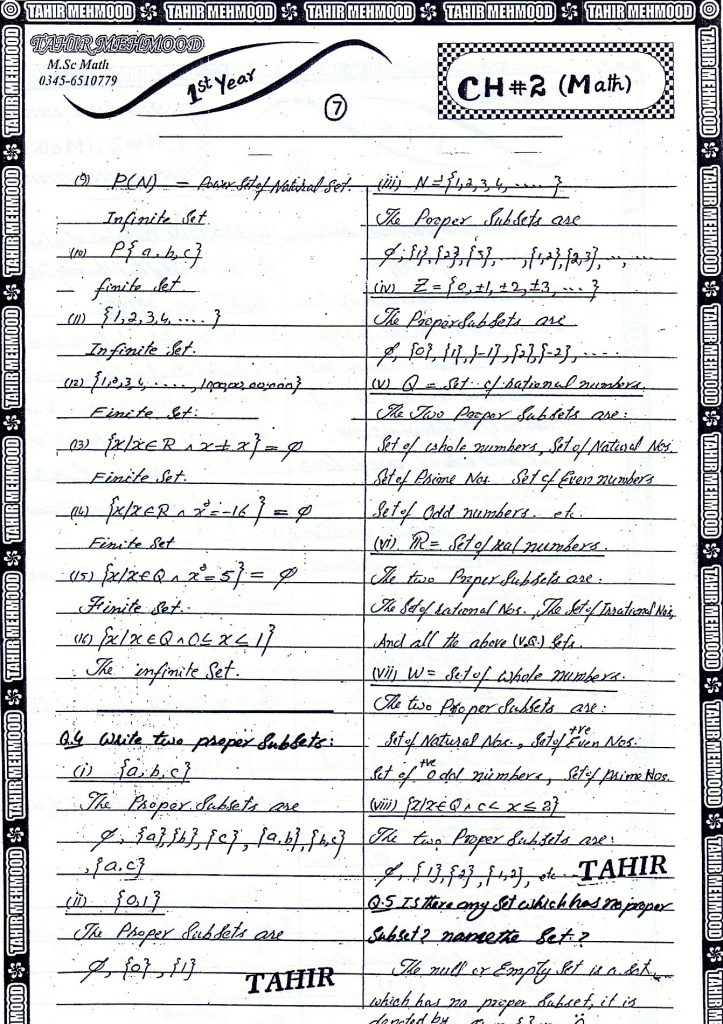 TAHIR MEHMOOD TAHIR MEHMOOD TAHIR MEHMOOD TAHIR MEHMOOD TAHIR MEHMOOD
TAHIR MEHMOOD
M.Sc Math
0345-6510779
1st Year
7
CH#2 (Math)
(9) P(N) = Power Set of Natural Set.
Infinite Set
(10) P{a,b,c}
finite set.
(11) {1,2,3,4,.....}
Infinite Set.
(12) {1,2,3,4,.....,100,00,00,000}
Finite Set.
(13) {x/x∈R ∧ x≠x} = φ
Finite Set.
(14) {x/x∈R ∧ x²=-16} = φ
Finite Set
(15) {x/x∈Q ∧ x²=5} = φ
Finite Set.
(16) {x/x∈Q ∧ 0≤x≤1}
The infinite Set.
Q.4 Write two proper Subsets:
(i) {a,b,c}
The Proper Subsets are
φ, {a},{b},{c}, {a,b},{b,c}
,{a,c}
(ii) {0,1}
The Proper Subsets are
φ, {0}, {1}
TAHIR
(iii) N={1,2,3,4,.....}
The Proper Subsets are
φ,{1},{2},{3},...,{1,2},{2,3},...,...
(iv) Z = {0,±1,±2,±3,...}
The Proper Subsets are
φ, {0}, {1},{-1},{2},{-2},.....
(v) Q = Set of rational numbers.
The Two Proper Subsets are:
Set of whole numbers, Set of Natural Nos.
Set of Prime Nos. Set of Even numbers
Set of Odd numbers. etc.
(vi) R = Set of real numbers.
The two Proper Subsets are:
The Set of rational Nos., The Set of Irrational Nos,
And all the above (v.Q.) Sets.
(vii) W = Set of whole numbers.
The two Proper Subsets are:
Set of Natural Nos., Set of +ve Even Nos.
Set of +ve Odd numbers, Set of Prime Nos.
(viii) {x/x∈Q ∧ 0< x ≤2}
The two Proper Subsets are:
φ, {1},{2}, {1,2}, etc
TAHIR
Q.5 Is there any Set which has no proper
Subset? name the Set.?
The null or Empty Set is a set
which has no proper Subset, it is
denoted by